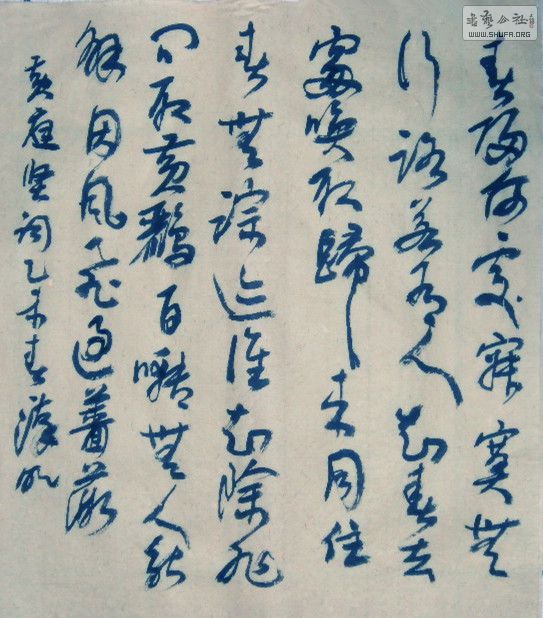 春歸何處寂寞無
行路若有人知春去
處喚取歸來同住
春無踪迹誰知除非
问取黄鸝百囀無人能
解因風飛過薔薇
黄庭坚词乙未春
書藝公社
WWW.SHUFA.ORG